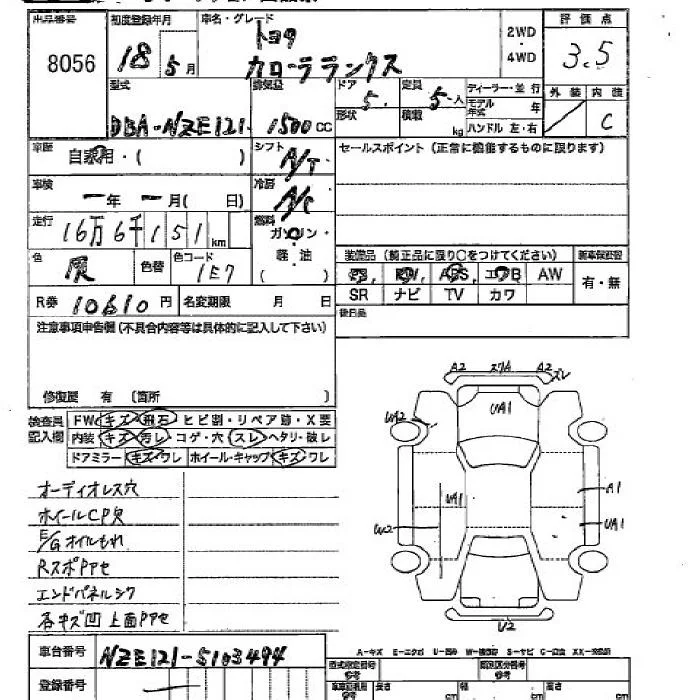 出品番号 初度登録年月 車名・グレード 評価点
8056 18 5月 トヨタ カローラランクス 2WD ・ 4WD 3.5
型式 排気量 ドア 定員 ディーラー・並行 外装 内装
DBA-NZE121 1500cc 5 5人 モデル年式 年 C
形状 積載 kg ハンドル 左・右
車歴 自家用・( ) シフト A/T セールスポイント (正常に機能するものに限ります)
車検 ー年ー月( 日) 冷房 A/C
走行 16万6千151km 燃料 ガソリン・軽油 ( )
装備品 (純正品に限り○をつけてください) 新車保証書
色 灰 色替 色コード 1E7 PS PW ABS エアB AW 有・無
R券 10610円 名変期限 月 日 SR ナビ TV カワ
注意事項申告欄(不具合内容等は具体的に記入して下さい) 後日品
修復歴 有 〔箇所 〕
検査員記入欄 FW キズ・飛石・ヒビ割・リペア跡・X要
内装 キズ・汚レ・コゲ・穴・スレ・ヘタリ・破レ
ドアミラー キズ・ワレ・ホイール・キャップ キズ・ワレ
オーディオレス穴
ホイールCP欠
E/Gオイルもれ
RスポPアセ
エンドパネルシワ
各キズ凹 上面PPアセ
A2 スリA A2 スレ
UA1
UA2
UA1 A1
UA1
U2
車台番号 NZE121-5103494
登録番号 ー
A-キズ E-エクボ U-凹み W-補修跡 S-サビ C-腐食 XX-交換済
型式指定番号 参考 類別区分番号 参考
長さ cm 幅 cm 高さ cm